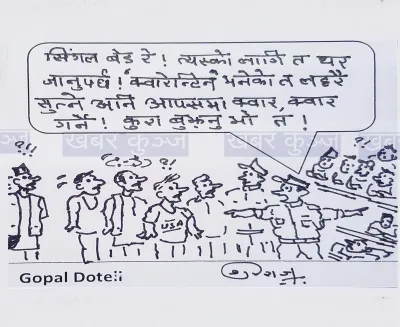 सिंगल बेड रे! त्यस्को लागि त घर
जानुपर्छ! क्वारेन्टिन भनेको त लहरै
सुत्ने अनि आपसमा क्वार, क्वार
गर्ने! कुरा बुझ्नु भो त!
?!!
?!
?!
खबर कुञ्ज
खबर कुञ्ज
USA
Gopal Doteli